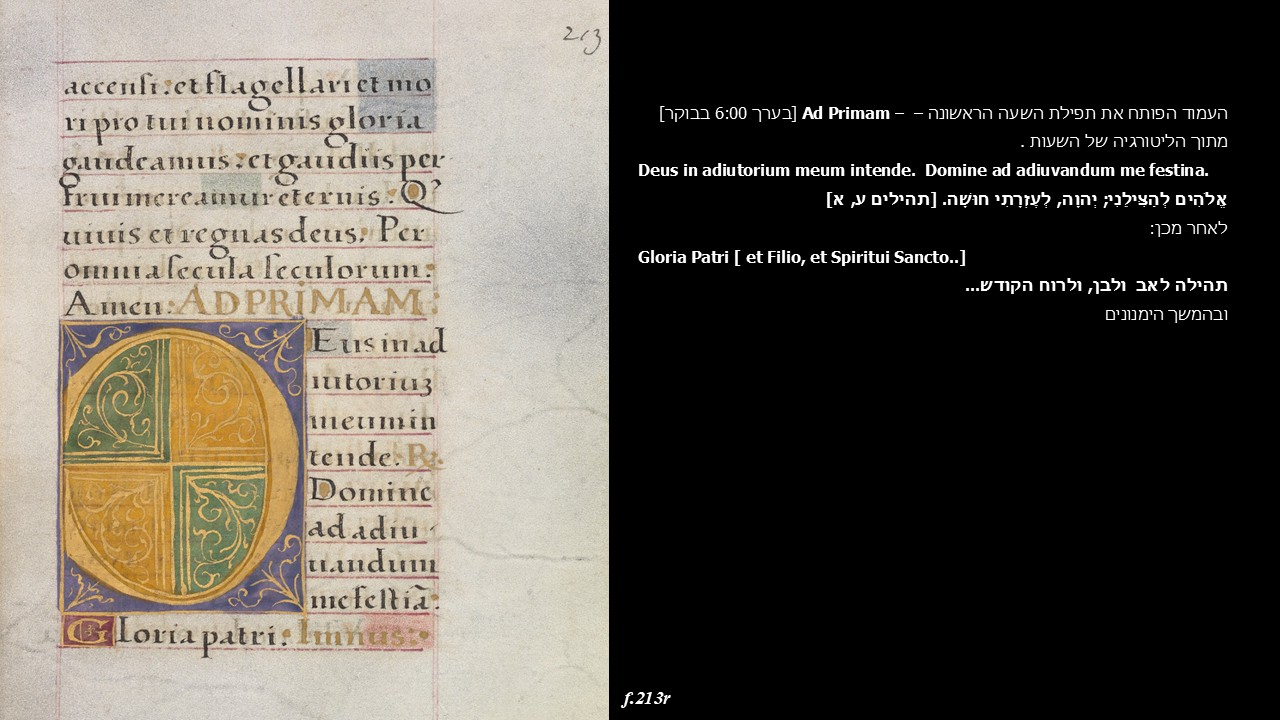 213
accensi: et flagellari et mo
ri pro tui nominis gloria
gaudeamus: et gaudiis per
frui mereamur eternis: Q'
uiuis et regnas deus. Per
omnia secula seculorum:
Amen: AD PRIMAM:
Eus in ad
iutoriuʒ
meum in
tende. R:
Domine
ad adiu
uandum
me festiã:
Gloria patri: Imnus:
העמוד הפותח את תפילת השעה הראשונה – – Ad Primam [בערך 6:00 בבוקר]
מתוך הליטורגיה של השעות .
Deus in adiutorium meum intende. Domine ad adiuvandum me festina.
אֱלֹהִים לְהַצִּילֵנִי; יְהוָה, לְעֶזְרָתִי חוּשָׁה. [תהילים ע, א]
לאחר מכן:
Gloria Patri [ et Filio, et Spiritui Sancto..]
תהילה לאב ולבן, ולרוח הקודש...
ובהמשך הימנונים
f.213r